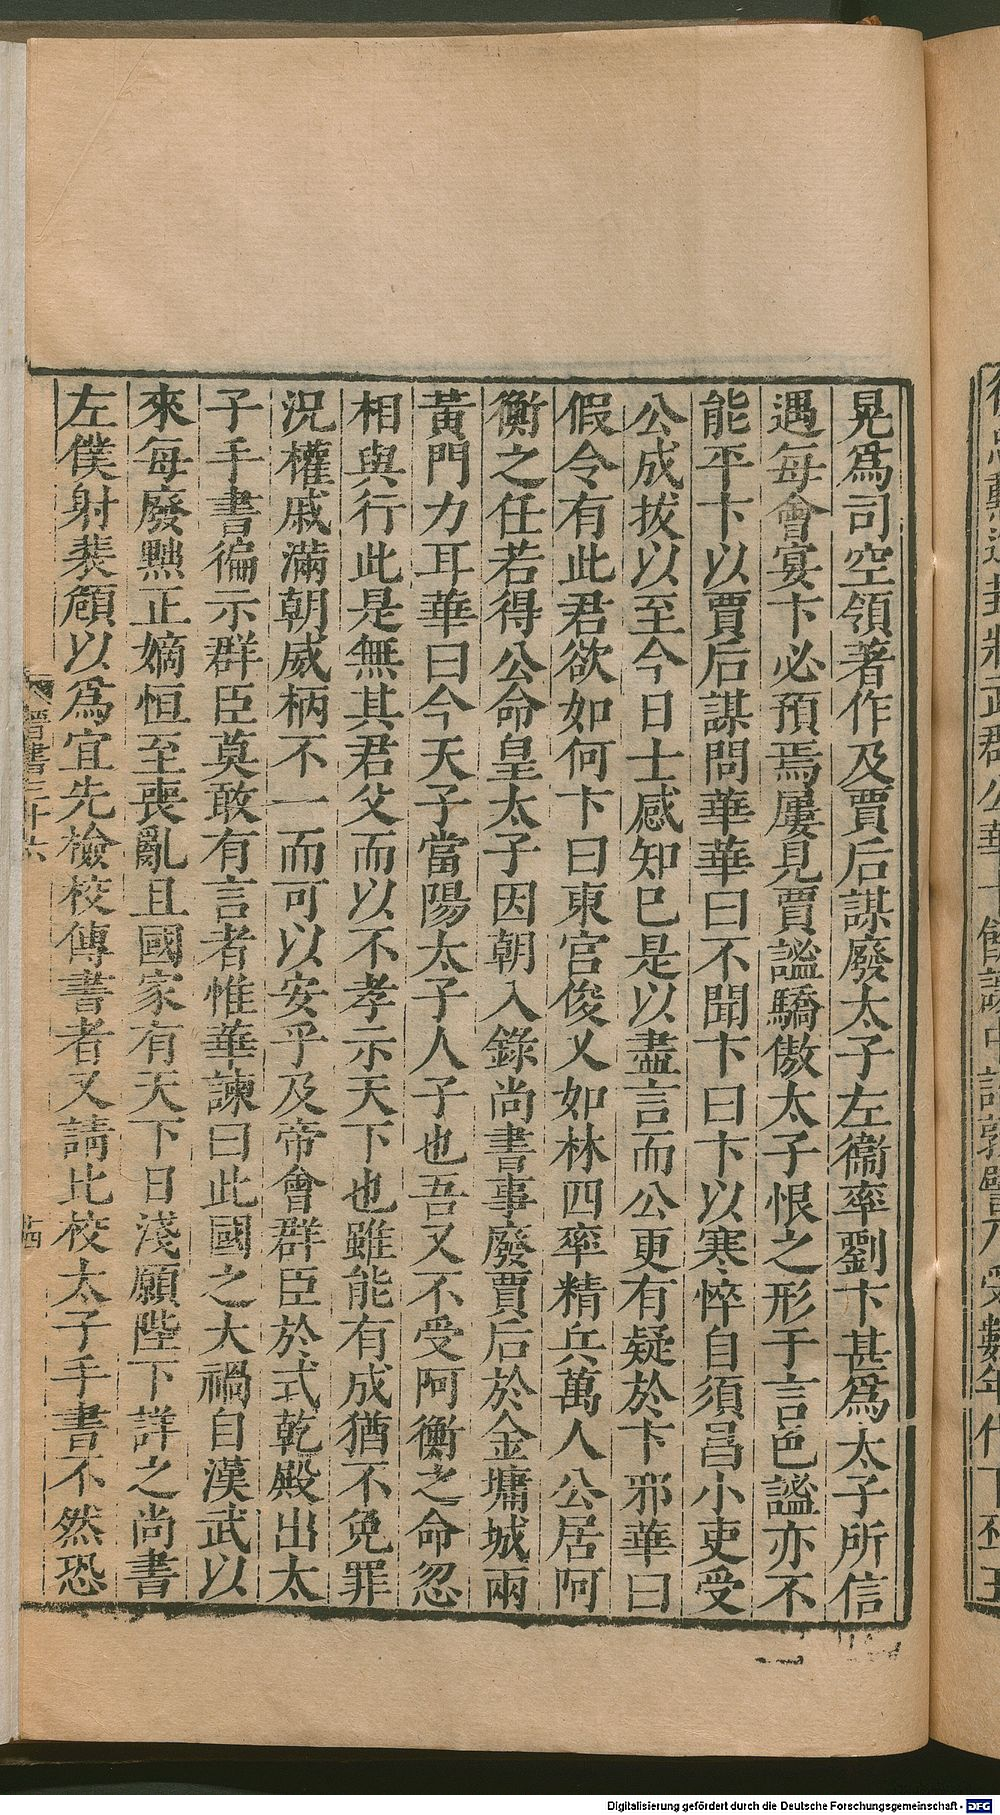 晃爲司空領著作及賈后謀廢太子左衞率劉卞甚爲太子所信
遇每會宴卞必預焉屢見賈謐驕傲太子恨之形于言色謐亦不
能平卞以賈后謀問華華曰不聞卞曰卞以寒悴自須昌小吏受
公成拔以至今日士感知已是以盡言而公更有疑於卞邪華曰
假令有此君欲如何卞曰東宮俊乂如林四率精兵萬人公居阿
衡之任若得公命皇太子因朝入錄尚書事廢賈后於金墉城兩
黃門力耳華曰今天子當陽太子人子也吾又不受阿衡之命忽
相與行此是無其君父而以不孝示天下也雖能有成猶不免罪
況權戚滿朝威柄不一而可以安乎及帝會群臣於式乾殿出太
子手書徧示群臣莫敢有言者惟華諫曰此國之大禍自漢武以
來每廢黜正嫡恒至喪亂且國家有天下日淺願陛下詳之尚書
左僕射裴頠以爲宜先檢校傳書者又請比校太子手書不然恐
晋書三十六
十四
Digitalisierung gefördert durch die Deutsche Forschungsgemeinschaft - DFG